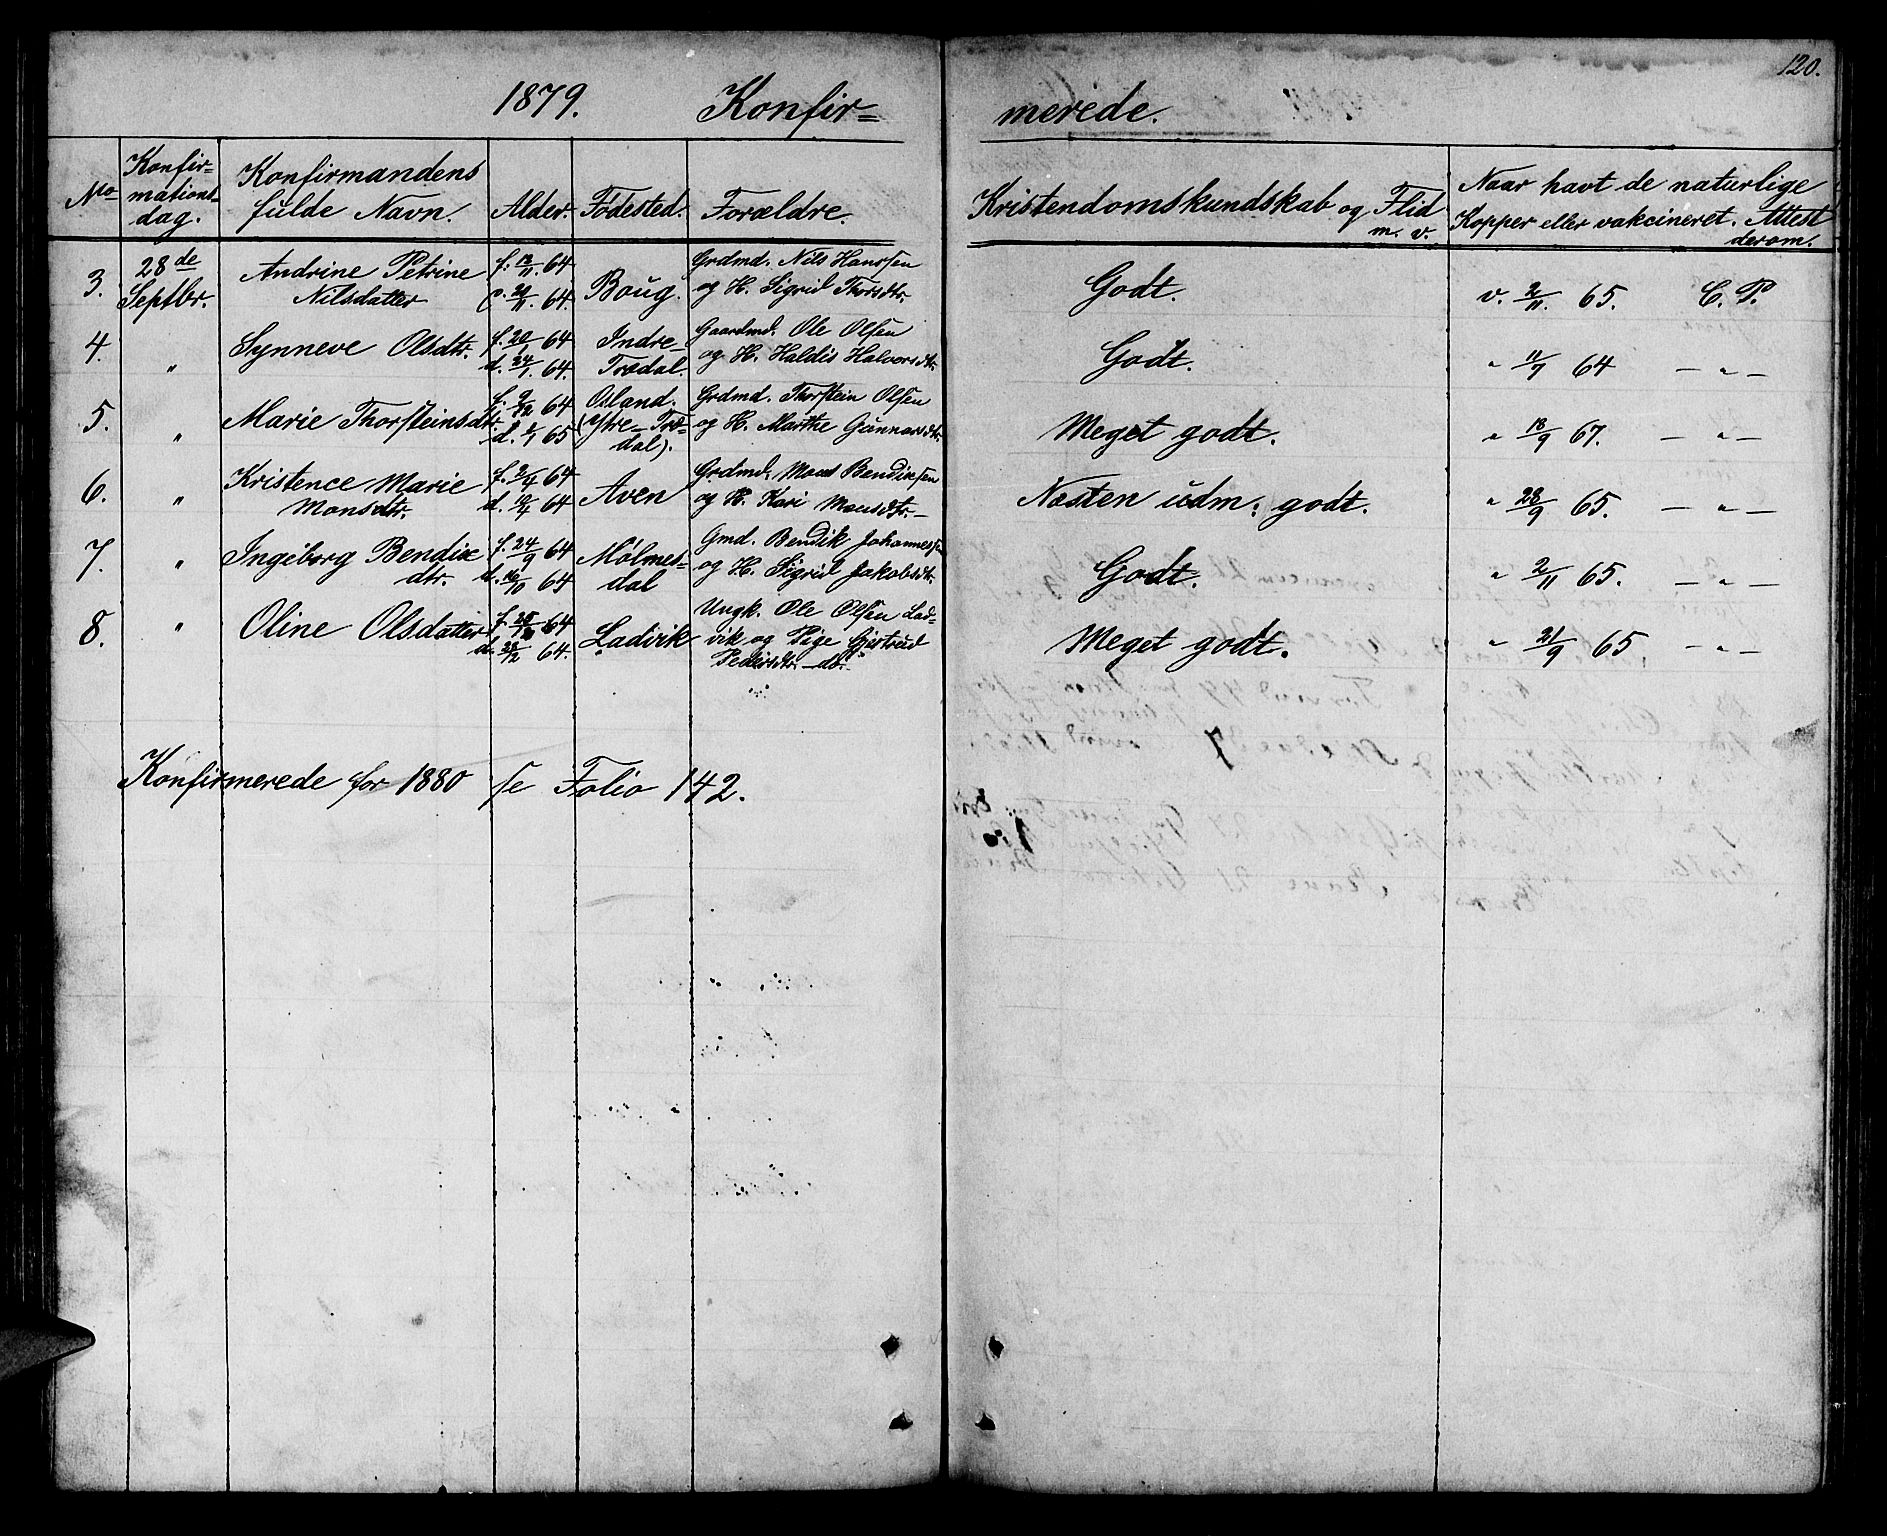 120.
1879. Konfir=
merede.
No Konfir=
mations-
dag. Konfirmandens
fulde Navn. Alder. Fødested. Forældre. Kristendomskundskab og Flid
m. v. Naar havt de naturlige
Kopper eller vakcineret. Attest
derom.
3. 28de
Septbr. Andrine Petrine
Nilsdatter f. 64
64. Boug. Grdmd. Nils Hanssen
og H. Sigrid Thorsdtr. Godt. v. 2/11 65. C. P.
4. " Synneve Olsdtr. f. 20/1 64
d. 24/1. 64. Indre-
Trædal. Gaardmd. Ole Olsen
og H. Haldis Halvorsdtr. Godt. " 11/7 64 — " —
5. " Marie Thorsteinsdtr. f. 64
d. 1/1 65 Osland.
(Ytre-Træ-
dal). Grdmd. Thorstein Olsen
og H. Marthe Gunnarsdtr. Meget godt. " 18/9 67. — " —
6. " Kristence Marie
Monsdtr. f. 2/4 64
d. 10/4 64 Aven Grdmd. Mons Bendiksen
og H. Kari Monsdtr. Næsten udm: godt. " 28/9 65. — " —
7. " Ingeborg Bendix
dtr. f. 24/9 64
d. 16/10 64 Mølmes-
dal Gmd. Bendik Johannessen
og H. Sigrid Jakobsdtr. Godt. " 2/11 65. — " —
8. " Oline Olsdatter f. 64
d. 64. Ladvik Ungk. Ole Olsen Lad-
vik og Pige Gjertrud
Pedersdtr. Meget godt. " 21/9 65 — " —
Konfirmerede for 1880 se Folio 142.